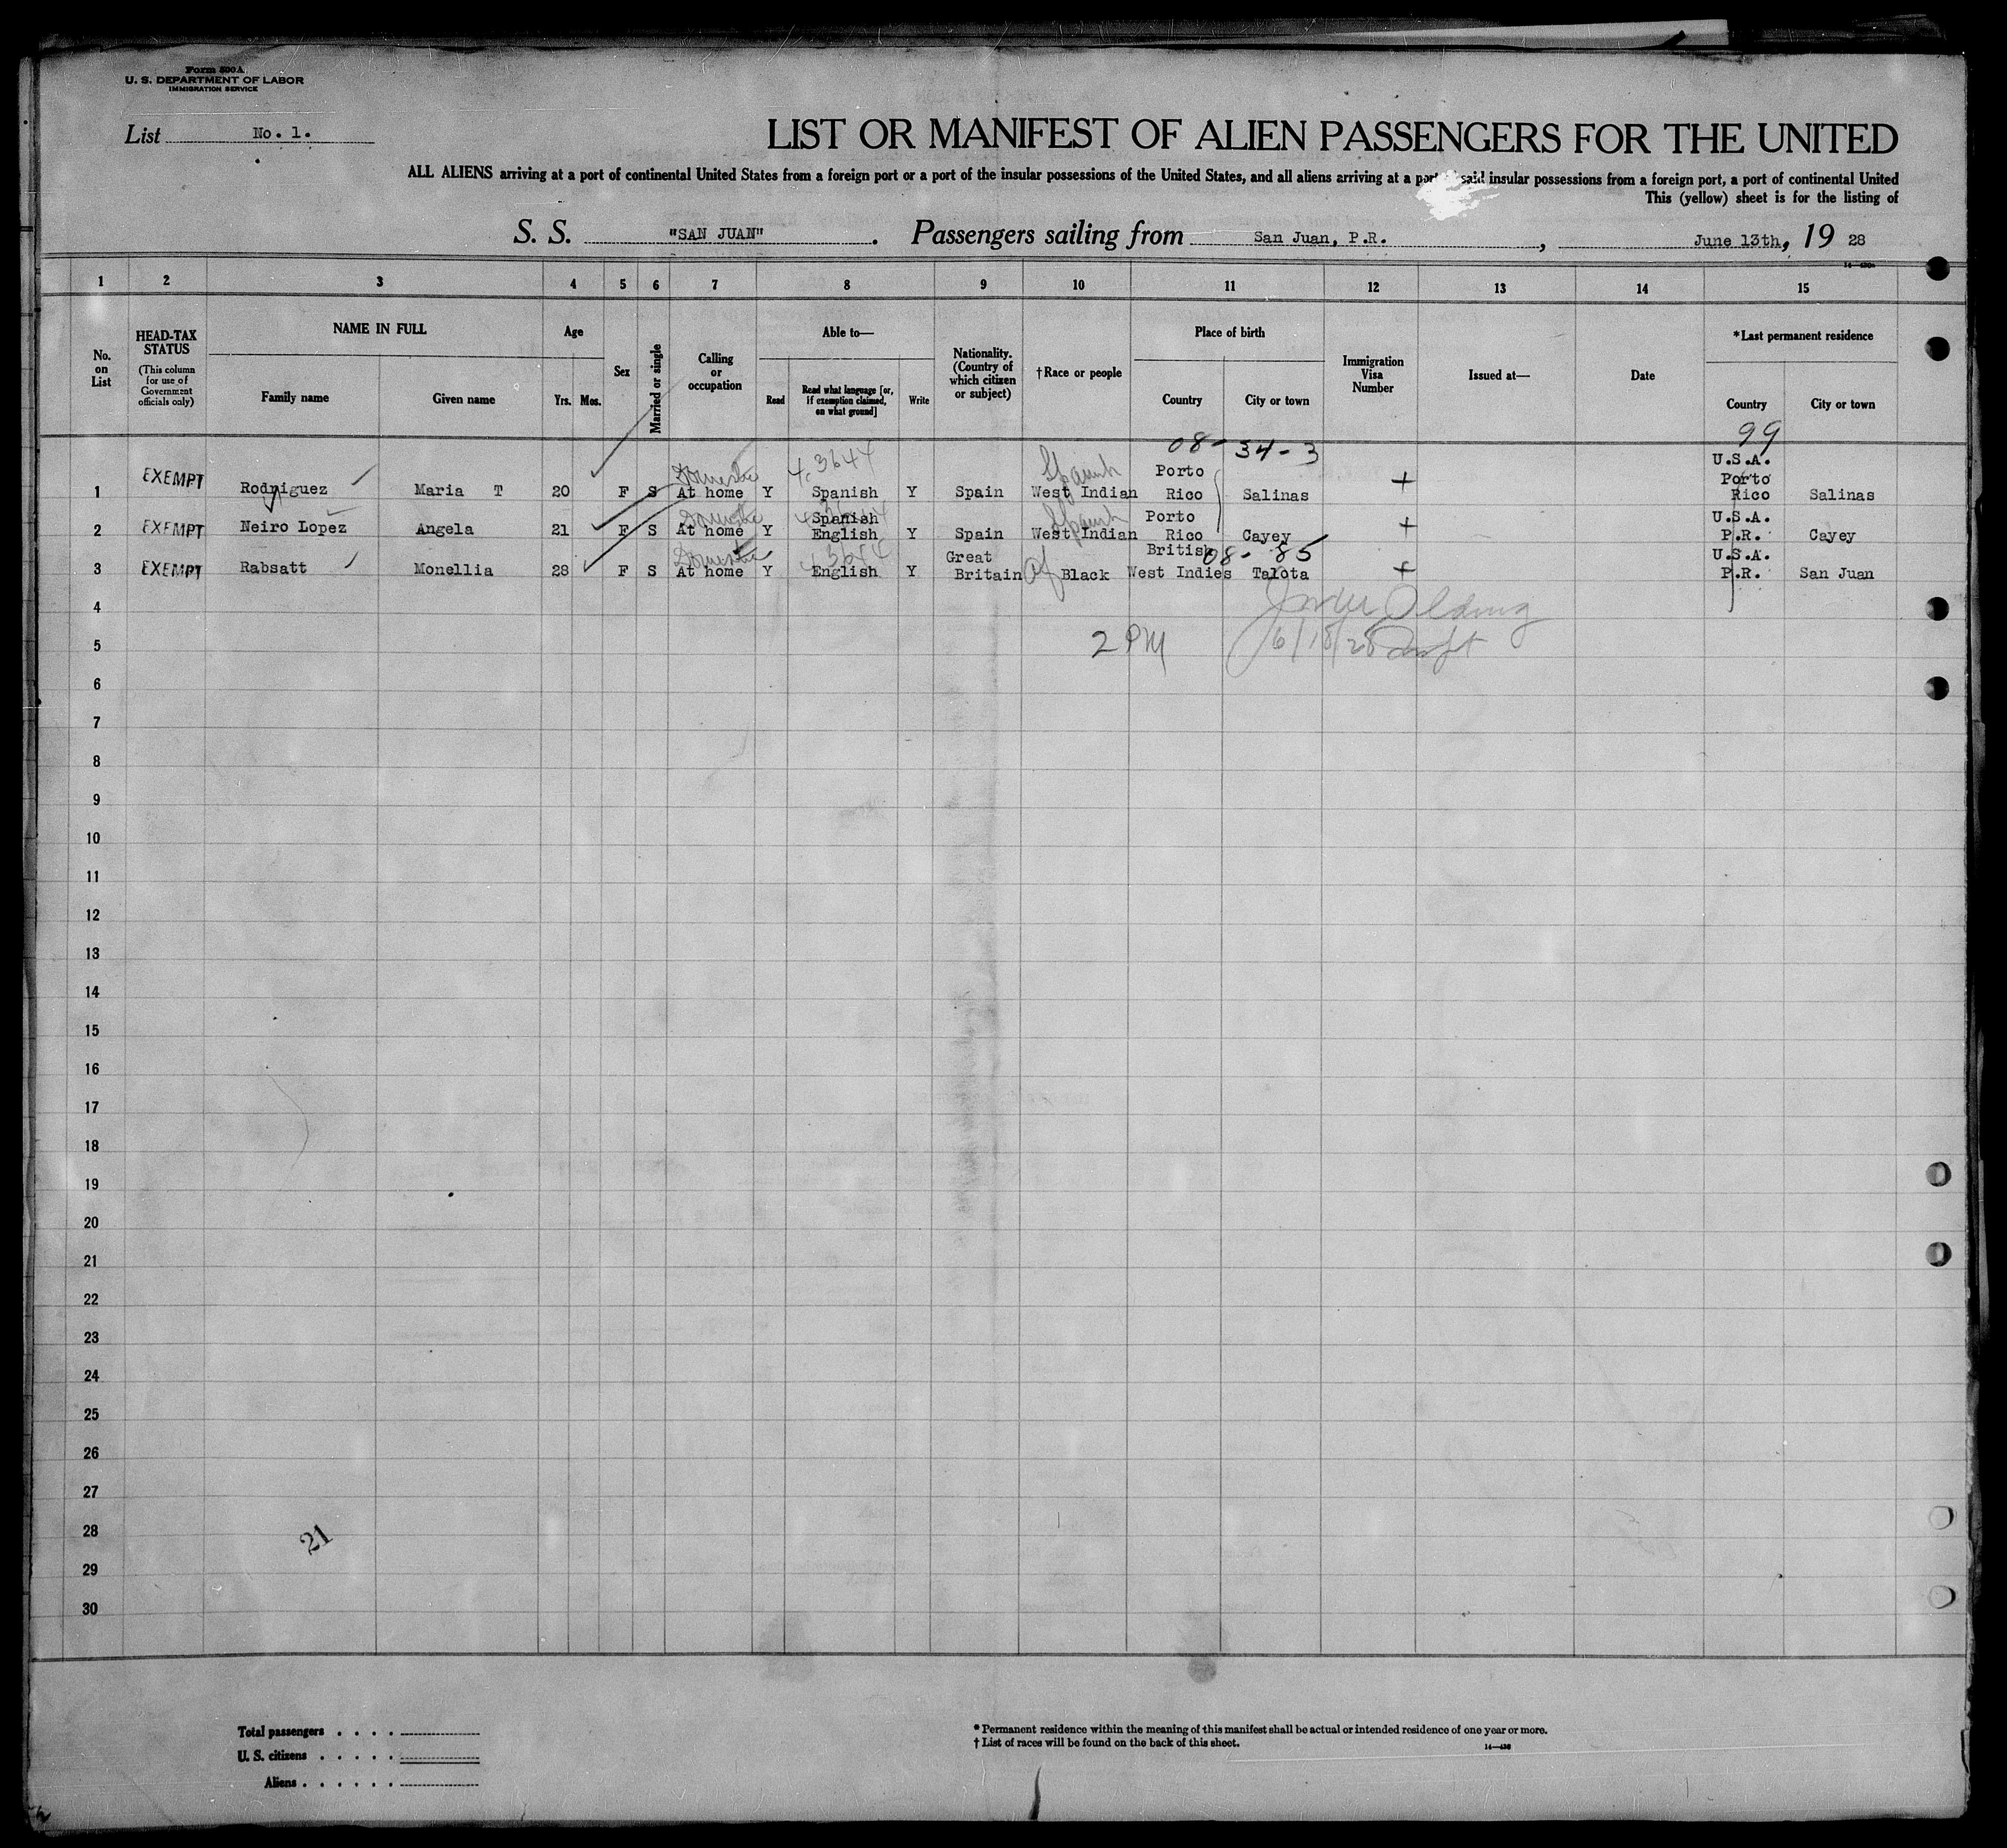 Form 500A
U. S. DEPARTMENT OF LABOR
IMMIGRATION SERVICE
List No. 1.
LIST OR MANIFEST OF ALIEN PASSENGERS FOR THE UNITED
ALL ALIENS arriving at a port of continental United States from a foreign port or a port of the insular possessions of the United States, and all aliens arriving at a port said insular possessions from a foreign port, a port of continental United
This (yellow) sheet is for the listing of
S. S. "SAN JUAN". Passengers sailing from San Juan, P.R., June 13th, 1928
1 2 3 4 5 6 7 8 9 10 11 12 13 14 15
No. on List
HEAD-TAX STATUS
(This column for use of Government officials only)
NAME IN FULL
Family name
Given name
Age
Yrs. Mos.
Sex
Married or single
Calling or occupation
Able to—
Read
Read what language [or, if exemption claimed, on what ground]
Write
Nationality. (Country of which citizen or subject)
†Race or people
Place of birth
Country
City or town
Immigration Visa Number
Issued at—
Date
*Last permanent residence
Country
City or town
08-34-3
99
Domestic
Spanish
1 EXEMPT Rodriguez Maria T 20 F S At home Y Spanish Y Spain West Indian Porto Rico Salinas + U.S.A. Porto Rico Salinas
Domestic
Spanish
2 EXEMPT Neiro Lopez Angela 21 F S At home Y Spanish English Y Spain West Indian Porto Rico Cayey + U.S.A. P.R. Cayey
Domestic
08-85
3 EXEMPT Rabsatt Monellia 28 F S At home Y English Y Great Britain Af Black British West Indies Talota + U.S.A. P.R. San Juan
4
5 2 PM 6/18/28
6
7
8
9
10
11
12
13
14
15
16
17
18
19
20
21
22
23
24
25
26
27
28
21
29
30
Total passengers . . . .
U. S. citizens . . . . .
Aliens . . . . . .
* Permanent residence within the meaning of this manifest shall be actual or intended residence of one year or more.
† List of races will be found on the back of this sheet.